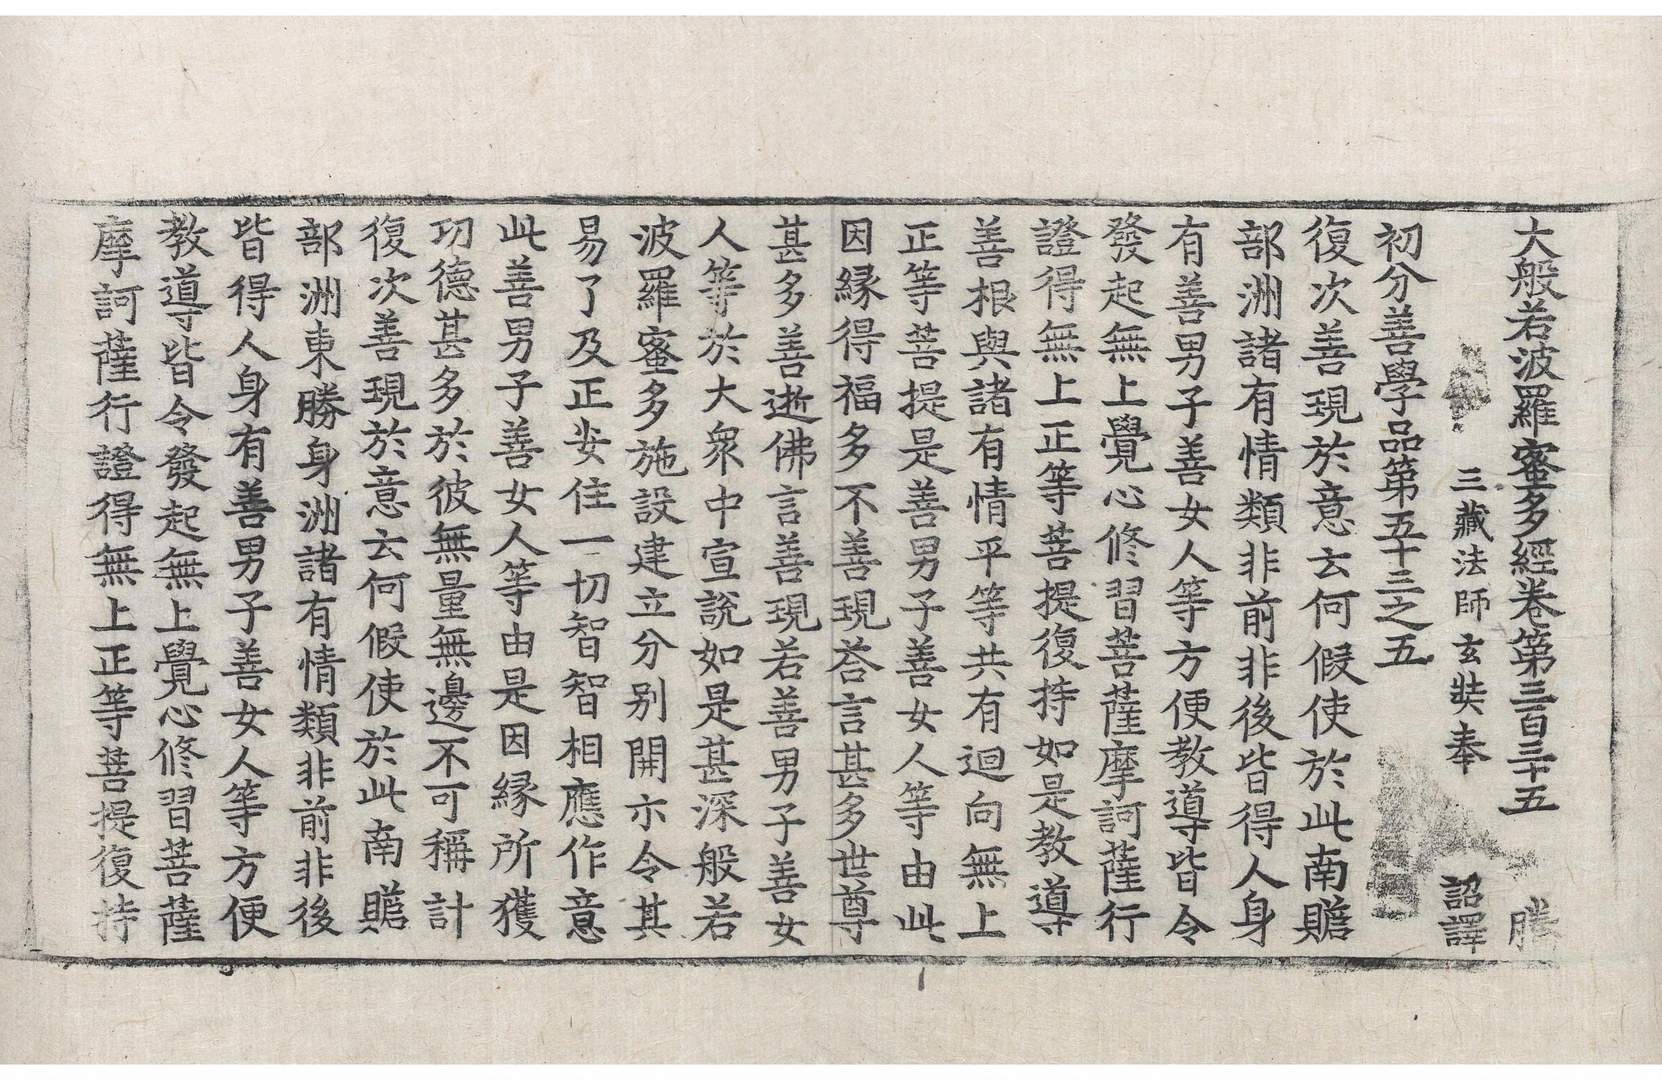 大般若波羅蜜多經卷第三百三十五　勝
三藏法師玄奘奉　詔譯
初分善學品第五十三之五
復次善現於意云何假使於此南贍
部洲諸有情類非前非後皆得人身
有善男子善女人等方便教導皆令
發起無上覺心修習菩薩摩訶薩行
證得無上正等菩提復持如是教導
善根與諸有情平等共有迴向無上
正等菩提是善男子善女人等由此
因緣得福多不善現荅言甚多世尊
甚多善逝佛言善現若善男子善女
人等於大衆中宣說如是甚深般若
波羅蜜多施設建立分別開示令其
易了及正安住一切智智相應作意
此善男子善女人等由是因緣所獲
功德甚多於彼無量無邊不可稱計
復次善現於意云何假使於此南贍
部洲東勝身洲諸有情類非前非後
皆得人身有善男子善女人等方便
教導皆令發起無上覺心修習菩薩
摩訶薩行證得無上正等菩提復持